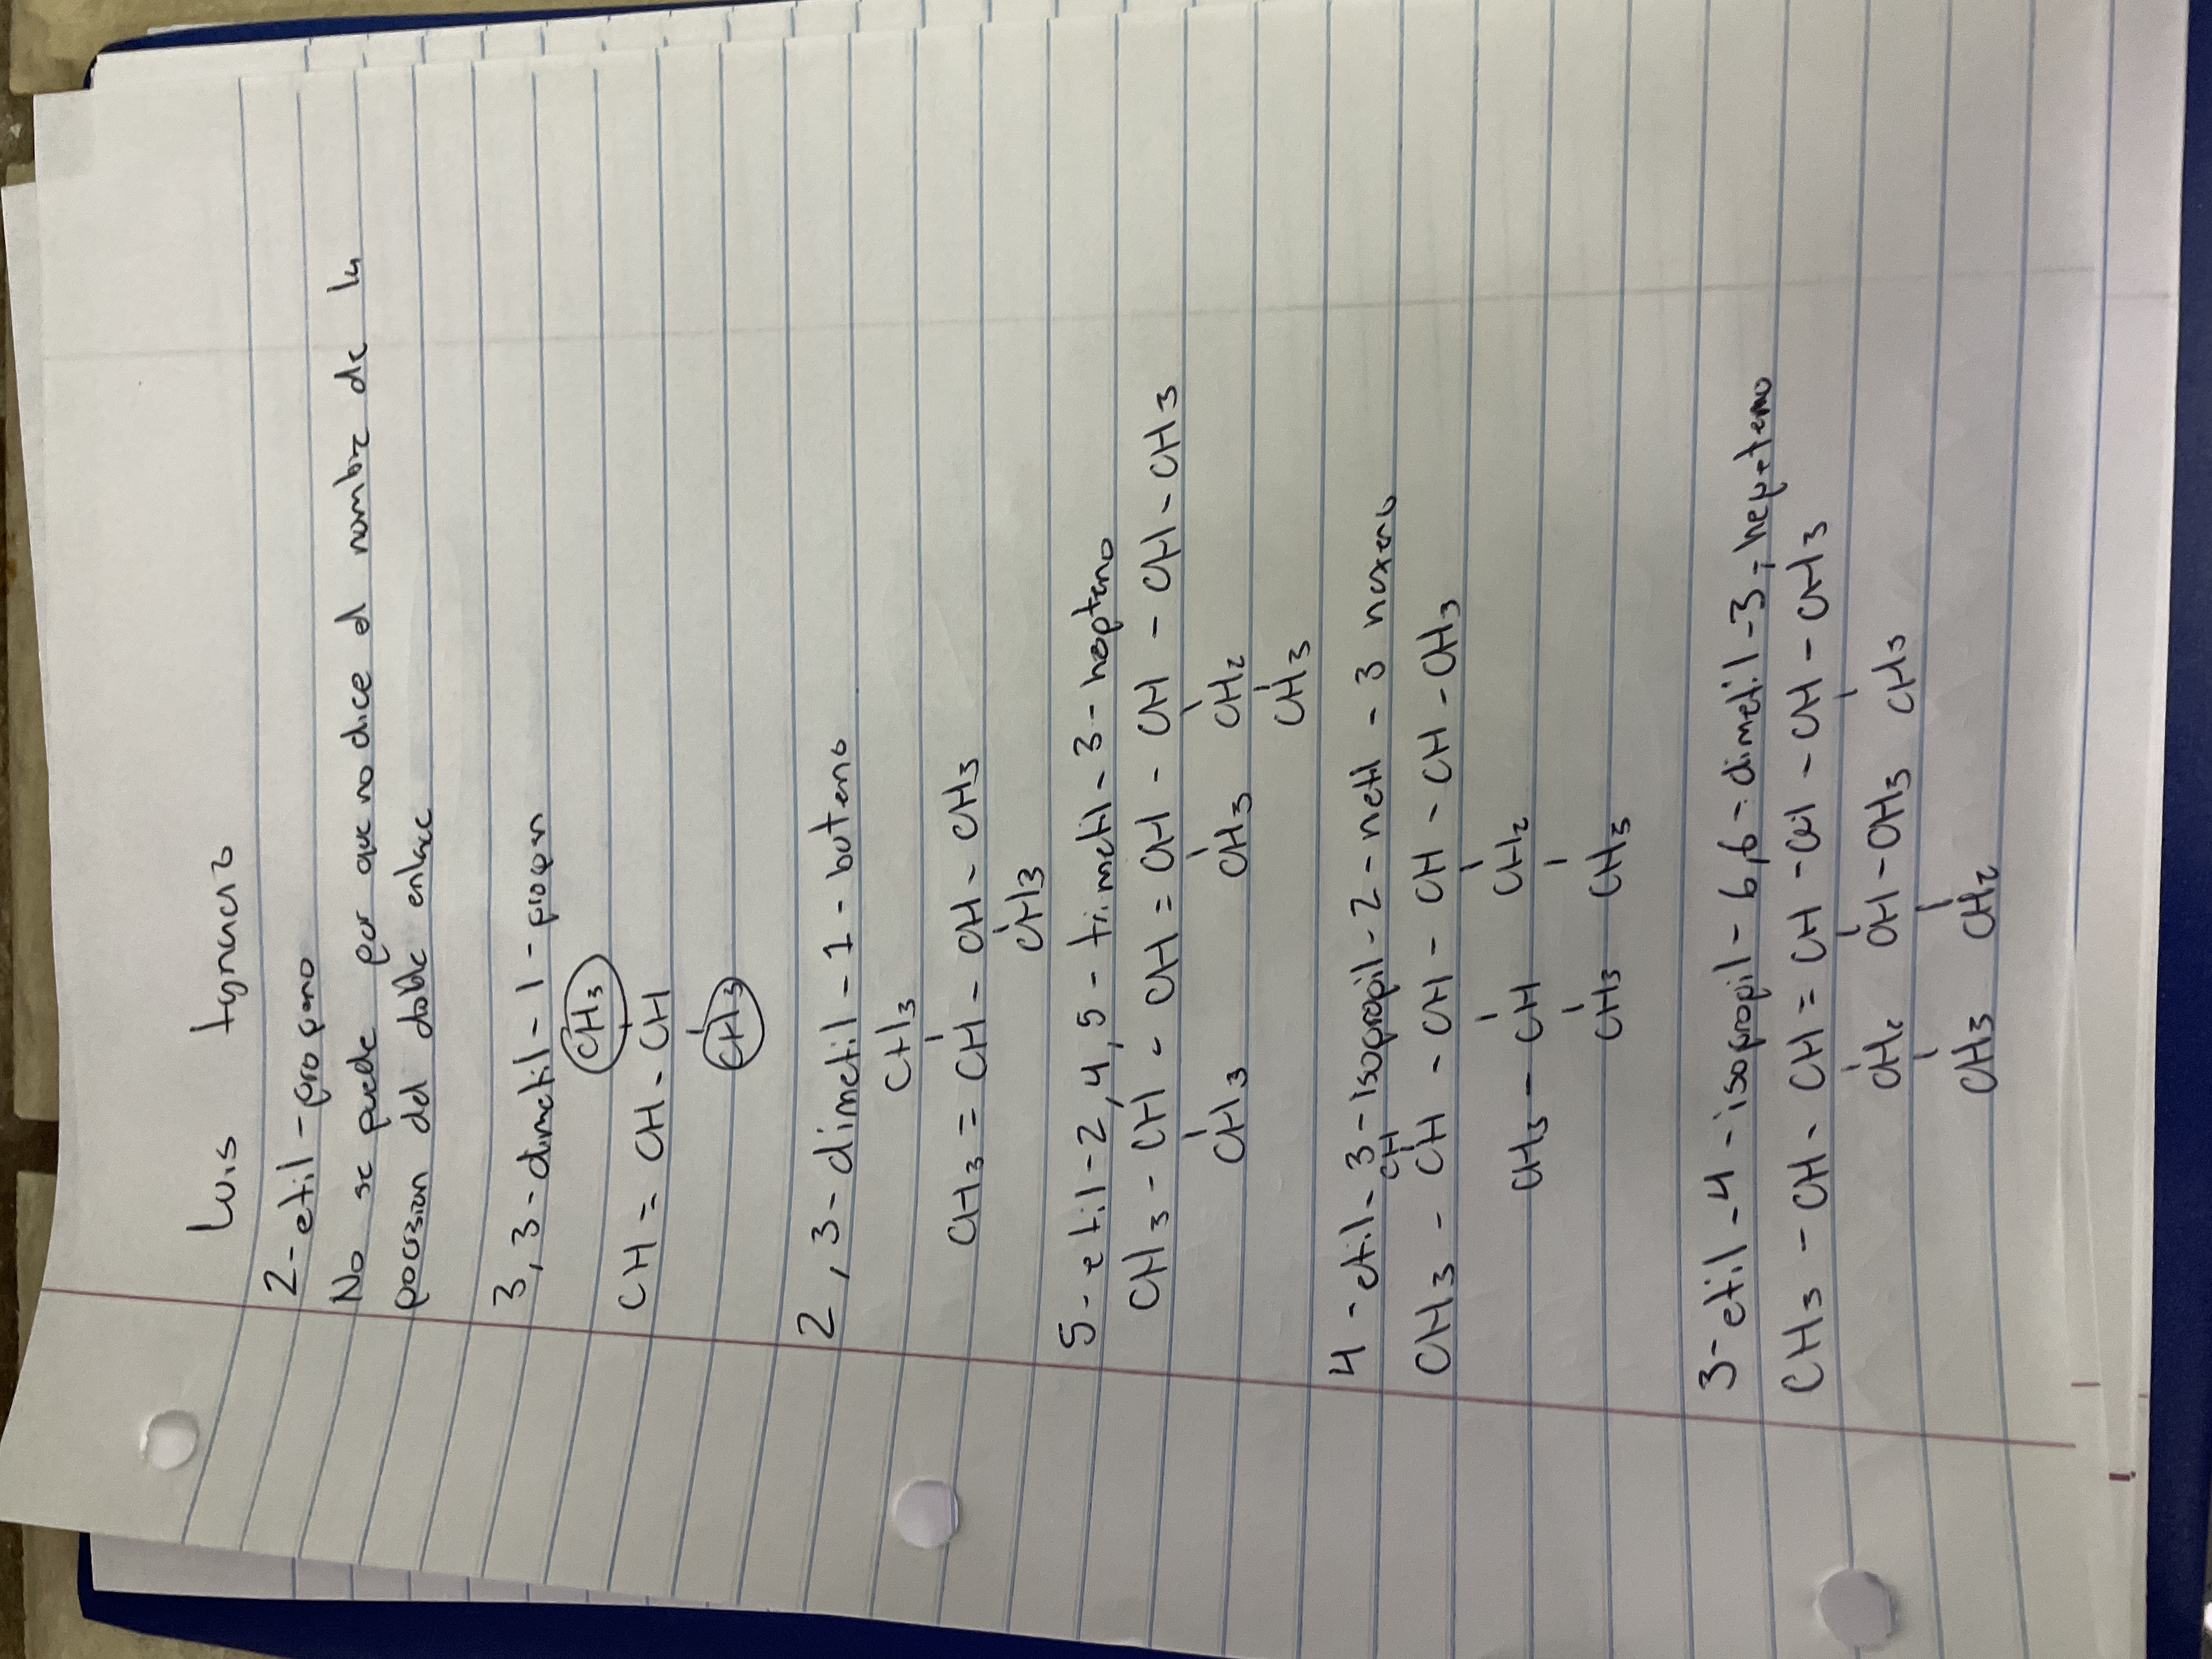 Luis Ignacio
2-etil-propeno
No se puede por que no dice el nombre de la
pocision del doble enlace
3,3-dimetil-1-propen
CH3
CH = CH - CH
CH3
2,3-dimetil-1-buteno
CH3
CH3 = CH - CH - CH3
CH3
5-etil-2,4,5-trimetil-3-hepteno
CH3 - CH - CH = CH - CH - CH - CH3
CH3 CH3 CH2
CH3
4-etil-3-isopropil-2-metil-3 hexeno
CH
CH3 - CH - CH - CH - CH - CH3
CH3 - CH CH2
CH3 CH3
3-etil-4-isopropil-6,6-dimetil-3-hepteno
CH3 - CH - CH = CH - CH - CH - CH3
CH2 CH - CH3 CH3
CH3 CH2